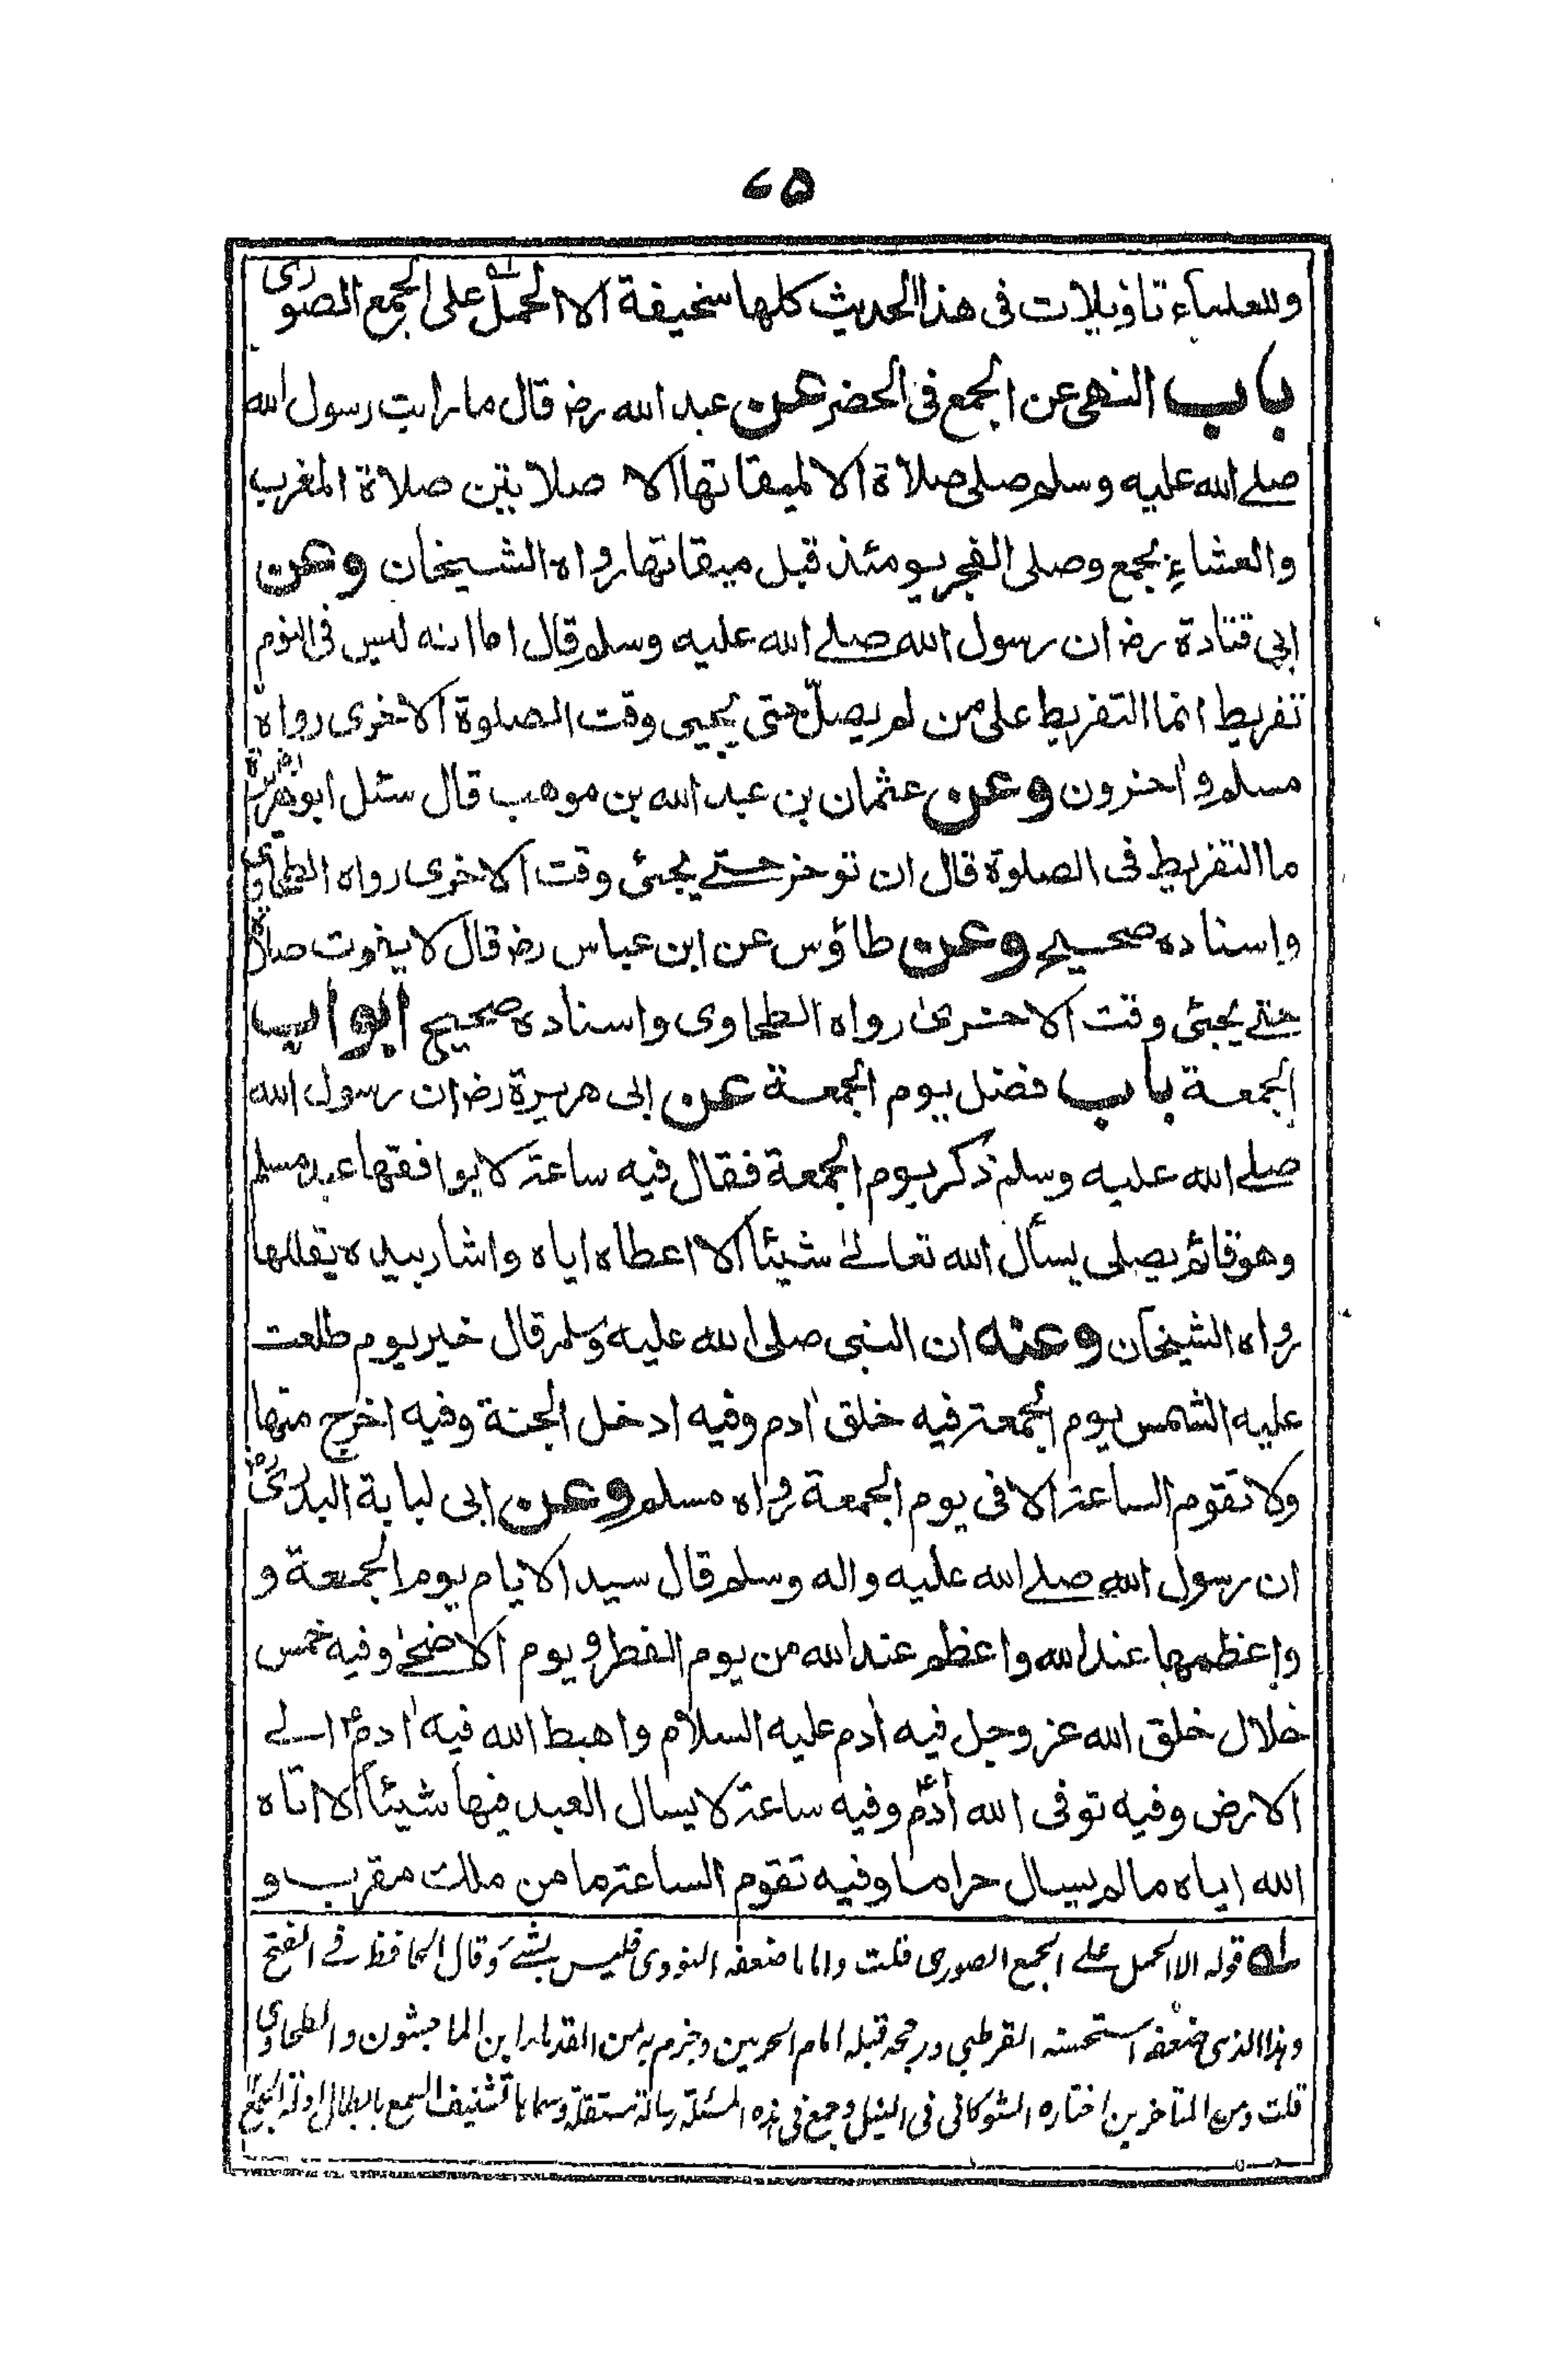 ۷۵
وللعلماء تاويلات فى هذا الحديث كلها سخيفة الا الحمل على الجمع الصورى
باب النهى عن الجمع فى الحضر عن عبد الله رضـ قال ما رايت رسول الله
صلى الله عليه وسلم صلى صلاة الا لميقاتها الا صلاتين صلاة المغرب
والعشاء بجمع وصلى الفجر يومئذ قبل ميقاتها رواه الشيخان وعن
ابى قتادة رضـ ان رسول الله صلى الله عليه وسلم قال اما انه ليس فى النوم
تفريط انما التفريط على من لم يصل حتى يجيى وقت الصلوة الاخرى رواه
مسلم واخرون وعن عثمان بن عبد الله بن موهب قال سئل ابو هريرة رضـ
ما التفريط فى الصلوة قال ان توخر حتى يجئى وقت الاخرى رواه الطحاوى
واسناده صحيح وعن طاؤس عن ابن عباس رضـ قال لا يفوت صلاة
حتى يجئى وقت الاخرى رواه الطحاوى واسناده صحيح ابواب
الجمعة باب فضل يوم الجمعة عن ابى هريرة رضـ ان رسول الله
صلى الله عليه وسلم ذكر يوم الجمعة فقال فيه ساعة لا يوافقها عبد مسلم
وهو قائم يصلى يسأل الله تعالىٰ شيئا الا اعطاه اياه واشار بيده يقللها
رواه الشيخان وعنه ان النبى صلى الله عليه وسلم قال خير يوم طلعت
عليه الشمس يوم الجمعة فيه خلق ادم وفيه ادخل الجنة وفيه اخرج منها
ولا تقوم الساعة الا فى يوم الجمعة رواه مسلم وعن ابى لبابة البدرى رضـ
ان رسول الله صلى الله عليه واله وسلم قال سيد الايام يوم الجمعة و
واعظمها عند الله واعظم عند الله من يوم الفطر ويوم الاضحىٰ وفيه خمس
خلال خلق الله عز وجل فيه ادم عليه السلام واهبط الله فيه ادمؑ الى
الارض وفيه توفى الله أدمؑ وفيه ساعة لا يسال العبد فيها شيئا الا اتاه
الله اياه ما لم يسال حراما وفيه تقوم الساعة ما من ملك مقرب و
له قوله الا الحمل على الجمع الصورى قلت واما ما ضعفه النووى فليس بشئ وقال الحافظ فى الفتح
وهذا الذى ضعفه استحسنه القرطبى ورجحه قبله امام الحرمين وجزم به من القدماء ابن الماجشون والطحاوى
قلت ومن المتاخرين اختاره الشوكانى فى النيل وجمع فى هذه المسئلة رسالة مستقلة وسماها تشنيف السمع بابطال ادلة الجمع